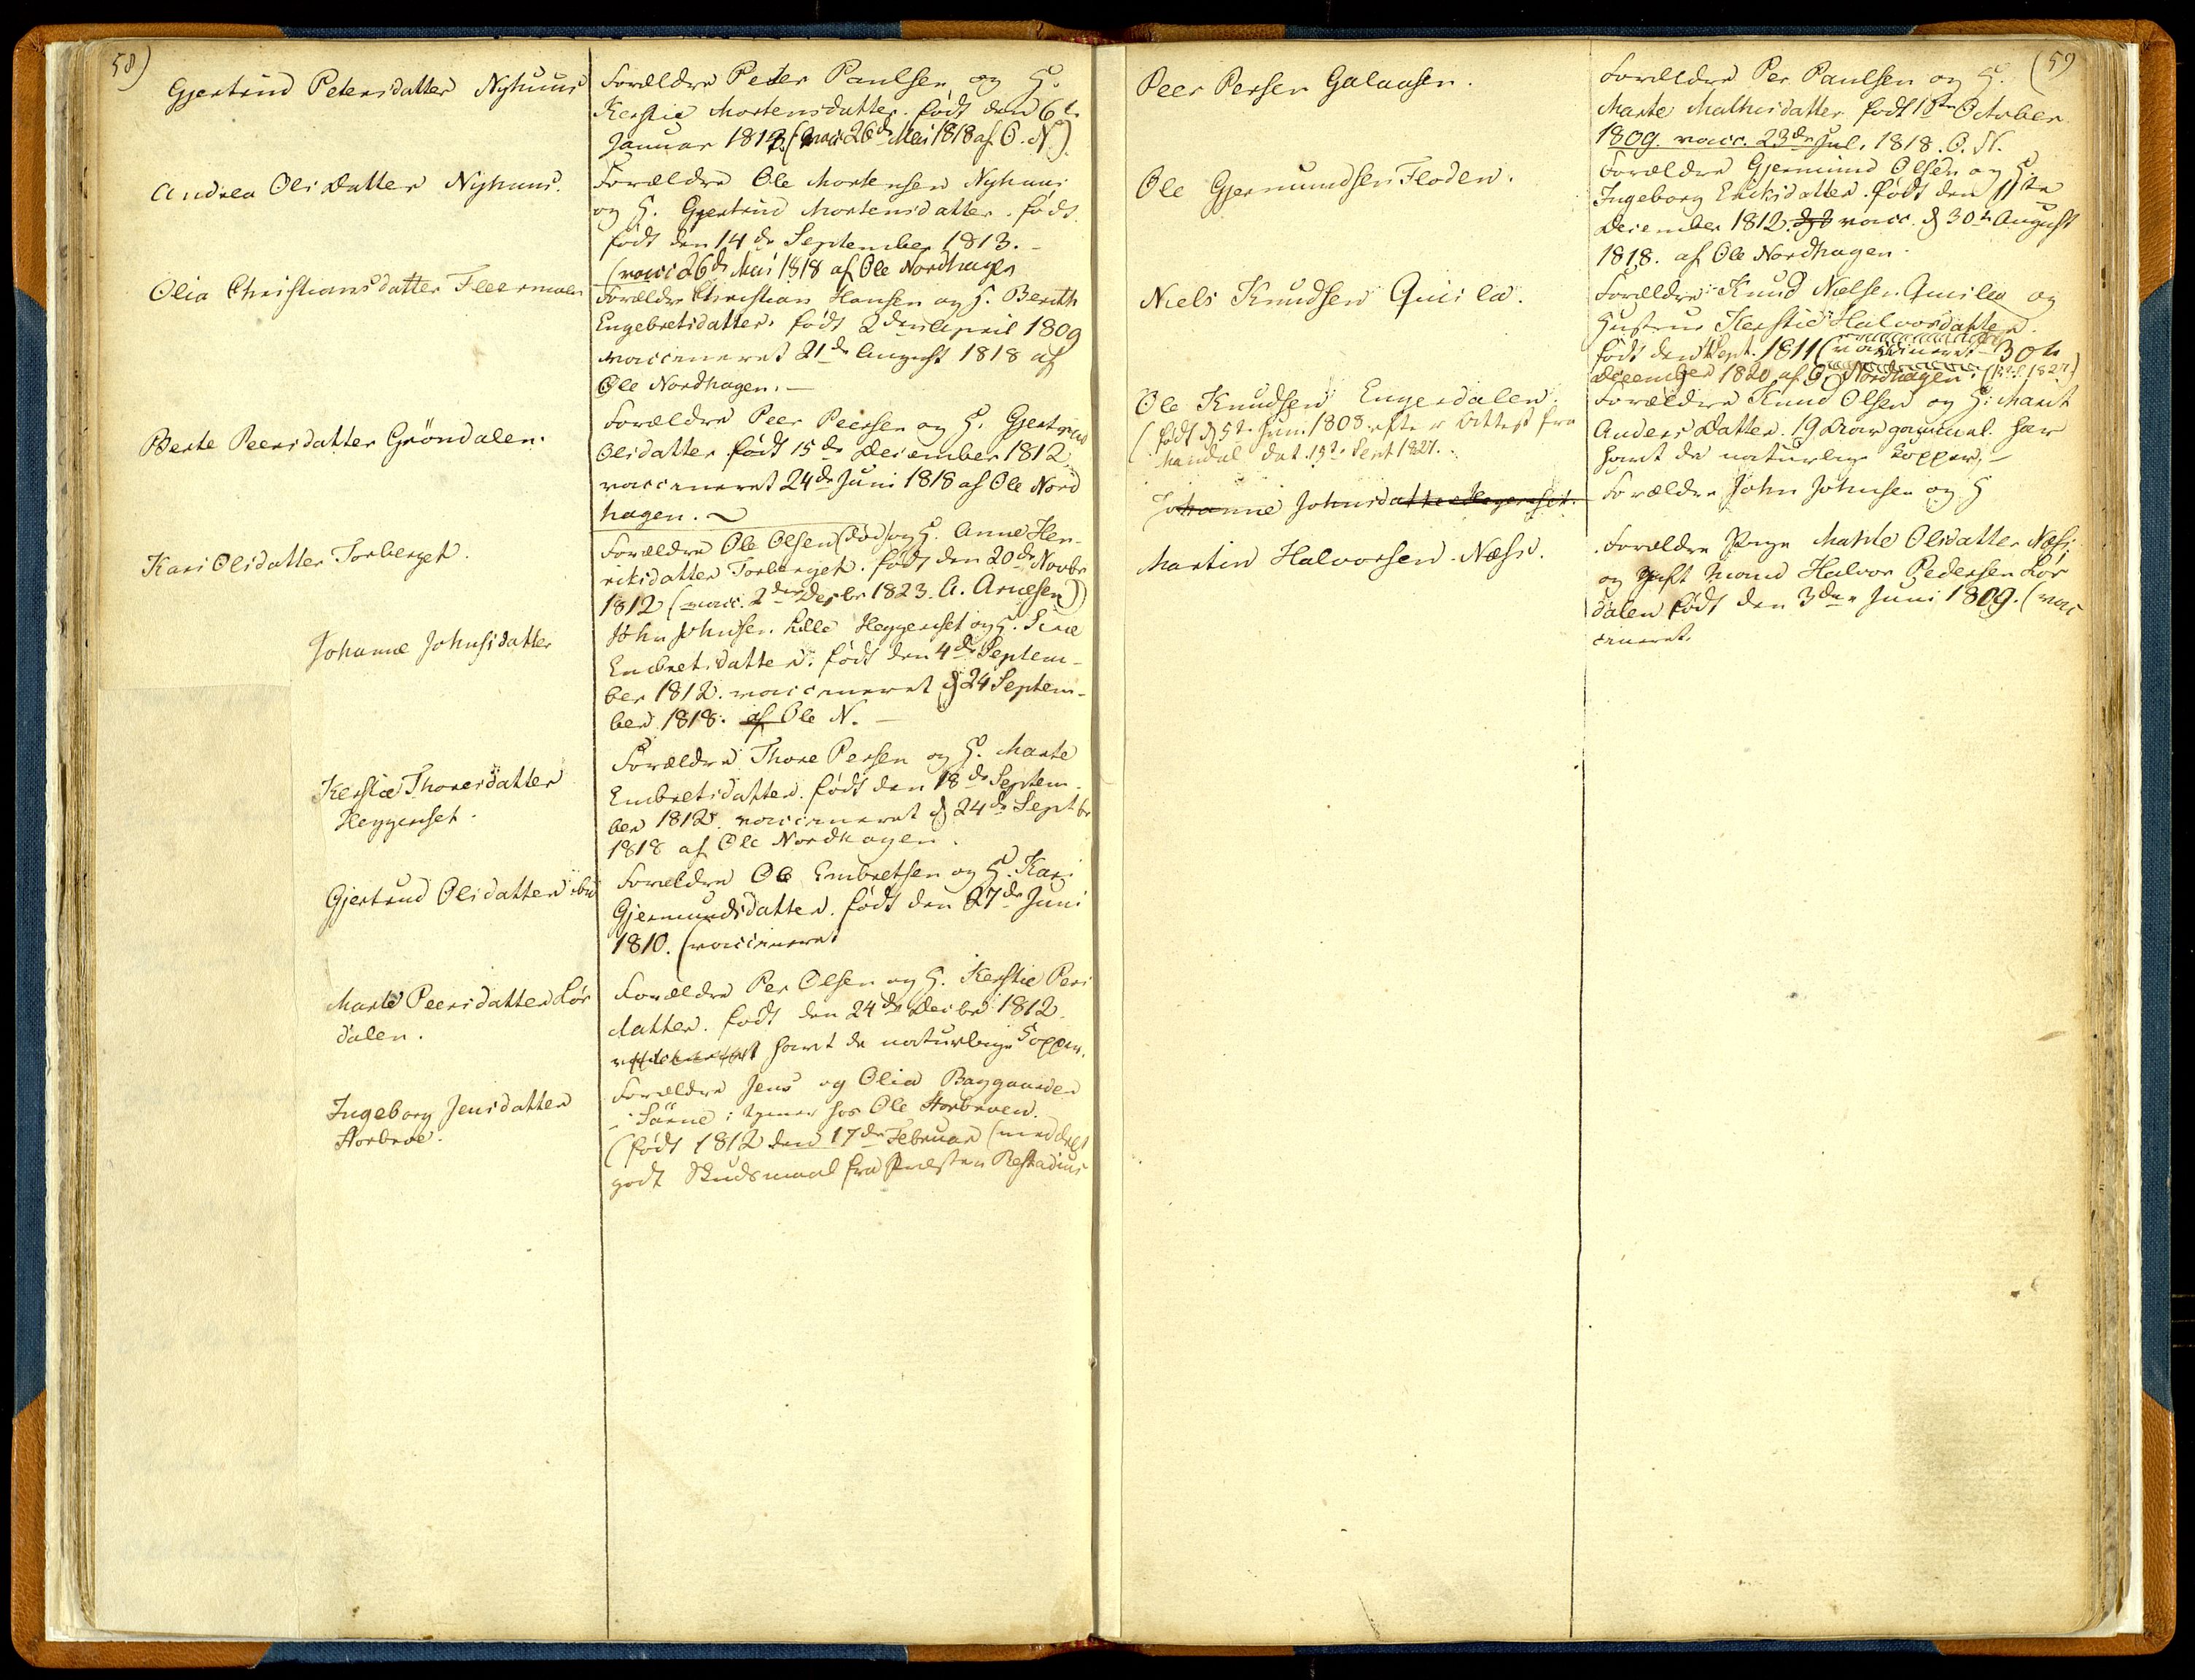 58)
Gjertrud Petersdatter Nyhuus
Forældre Peder Paulsen og H.
Kerstie Mortensdatter. født den 6te
Januar 1813. (vacc 26de Mai 1818 af O. N.)
Andrea Olisdatter Nyhuus.
Forældre Ole Mortensen Nyhuus
og H. Gjertrud Mortensdatter. født
født den 14de September 1813. –
(vacc 26de Mai 1818 af Ole Nordhagen
Olia Christiansdatter Fleermoen
Forældre Christian Hansen og H. Berith
Engebretsdatter. født 2den April 1809
vaccineret 21de August 1818 af
Ole Nordhagen. –
Berte Peersdatter Gröndalen.
Forældre Peer Peersen og H. Gjertrud
Olsdatter født 15de December 1812
vaccineret 24de Juni 1818 af Ole Nord
hagen.
Kari Olisdatter Torberget.
Forældre Ole Olsen (død) og H. Anne Hen-
riksdatter Torberget. født den 20de Novbr
1812 (vacc. 2den Decbr 1823. A. Arnesen)
Johanne Johnsdatter
John Johnsen Lille Heggeriset og H. Sine
Embretsdatter. født den 4de Septem-
ber 1812. vaccineret d 24 Septem-
ber 1818. af Ole N. –
Kerstie Thoresdatter
Heggeriset.
Forældre Thore Persen og H. Marte
Embretsdatter. født den 18de Septem-
ber 1812. vaccineret d 24de Septbr
1818 af Ole Nordhagen.
Gjertrud Olisdatter ibid
Forældre Ole Embretsen og H. Kari
Gjermundsdatter. født den 27de Juni
1810. (vaccineret
Marte Peersdatter Lør
dalen.
Forældre Per Olsen og H. Kerstie Pers
datter. født den 24de Decbr 1812.
havt de naturlige Kopper.
Ingeborg Jensdatter
Storbroe.
Forældre Jens og Olia Baggaarden
i Särne; tjener hos Ole Storbroen.
(født 1812 den 17de Februar (meddelt
godt Skudsmaal fra Præsten Restadius
(59
Peer Persen Galaasen.
Forældre Per Paulsen og H.
Marte Mathisdatter født 18de October
1809. vacc. 23de Jul. 1818. O. N.
Ole Gjermundsen Floden.
Forældre Gjermund Olsen og H.
Ingeborg Eriksdatter. født den 11te
December 1812. vacc. d 30te August
1818. af Ole Nordhagen.
Niels Knudsen Quila.
Forældre Knud Nielsen Quilla og
Hustrue Kerstie Halvorsdatter.
født den Sept. 1811 (vaccineret 30te
December 1820 af O Nordhagen.
Ole Knudsen Engerdalen.
(født d 5te Juni 1808 efter Attest fra
Mandal dat. 19de Sept 1827.
Forældre Knud Olsen og H: Marit
Andersdatter. 19 Aar gammel. har
havt de naturlige Kopper. –
Johanne Johnsdatter Heggeriset.
Forældre John Johnsen og H
Martin Halvorsen Næss.
Forældre Pige Marte Olisdatter Næss
og gift Mand Halvor Pedersen Lør
dalen født den 3den Juni 1809. (vac
cineret.